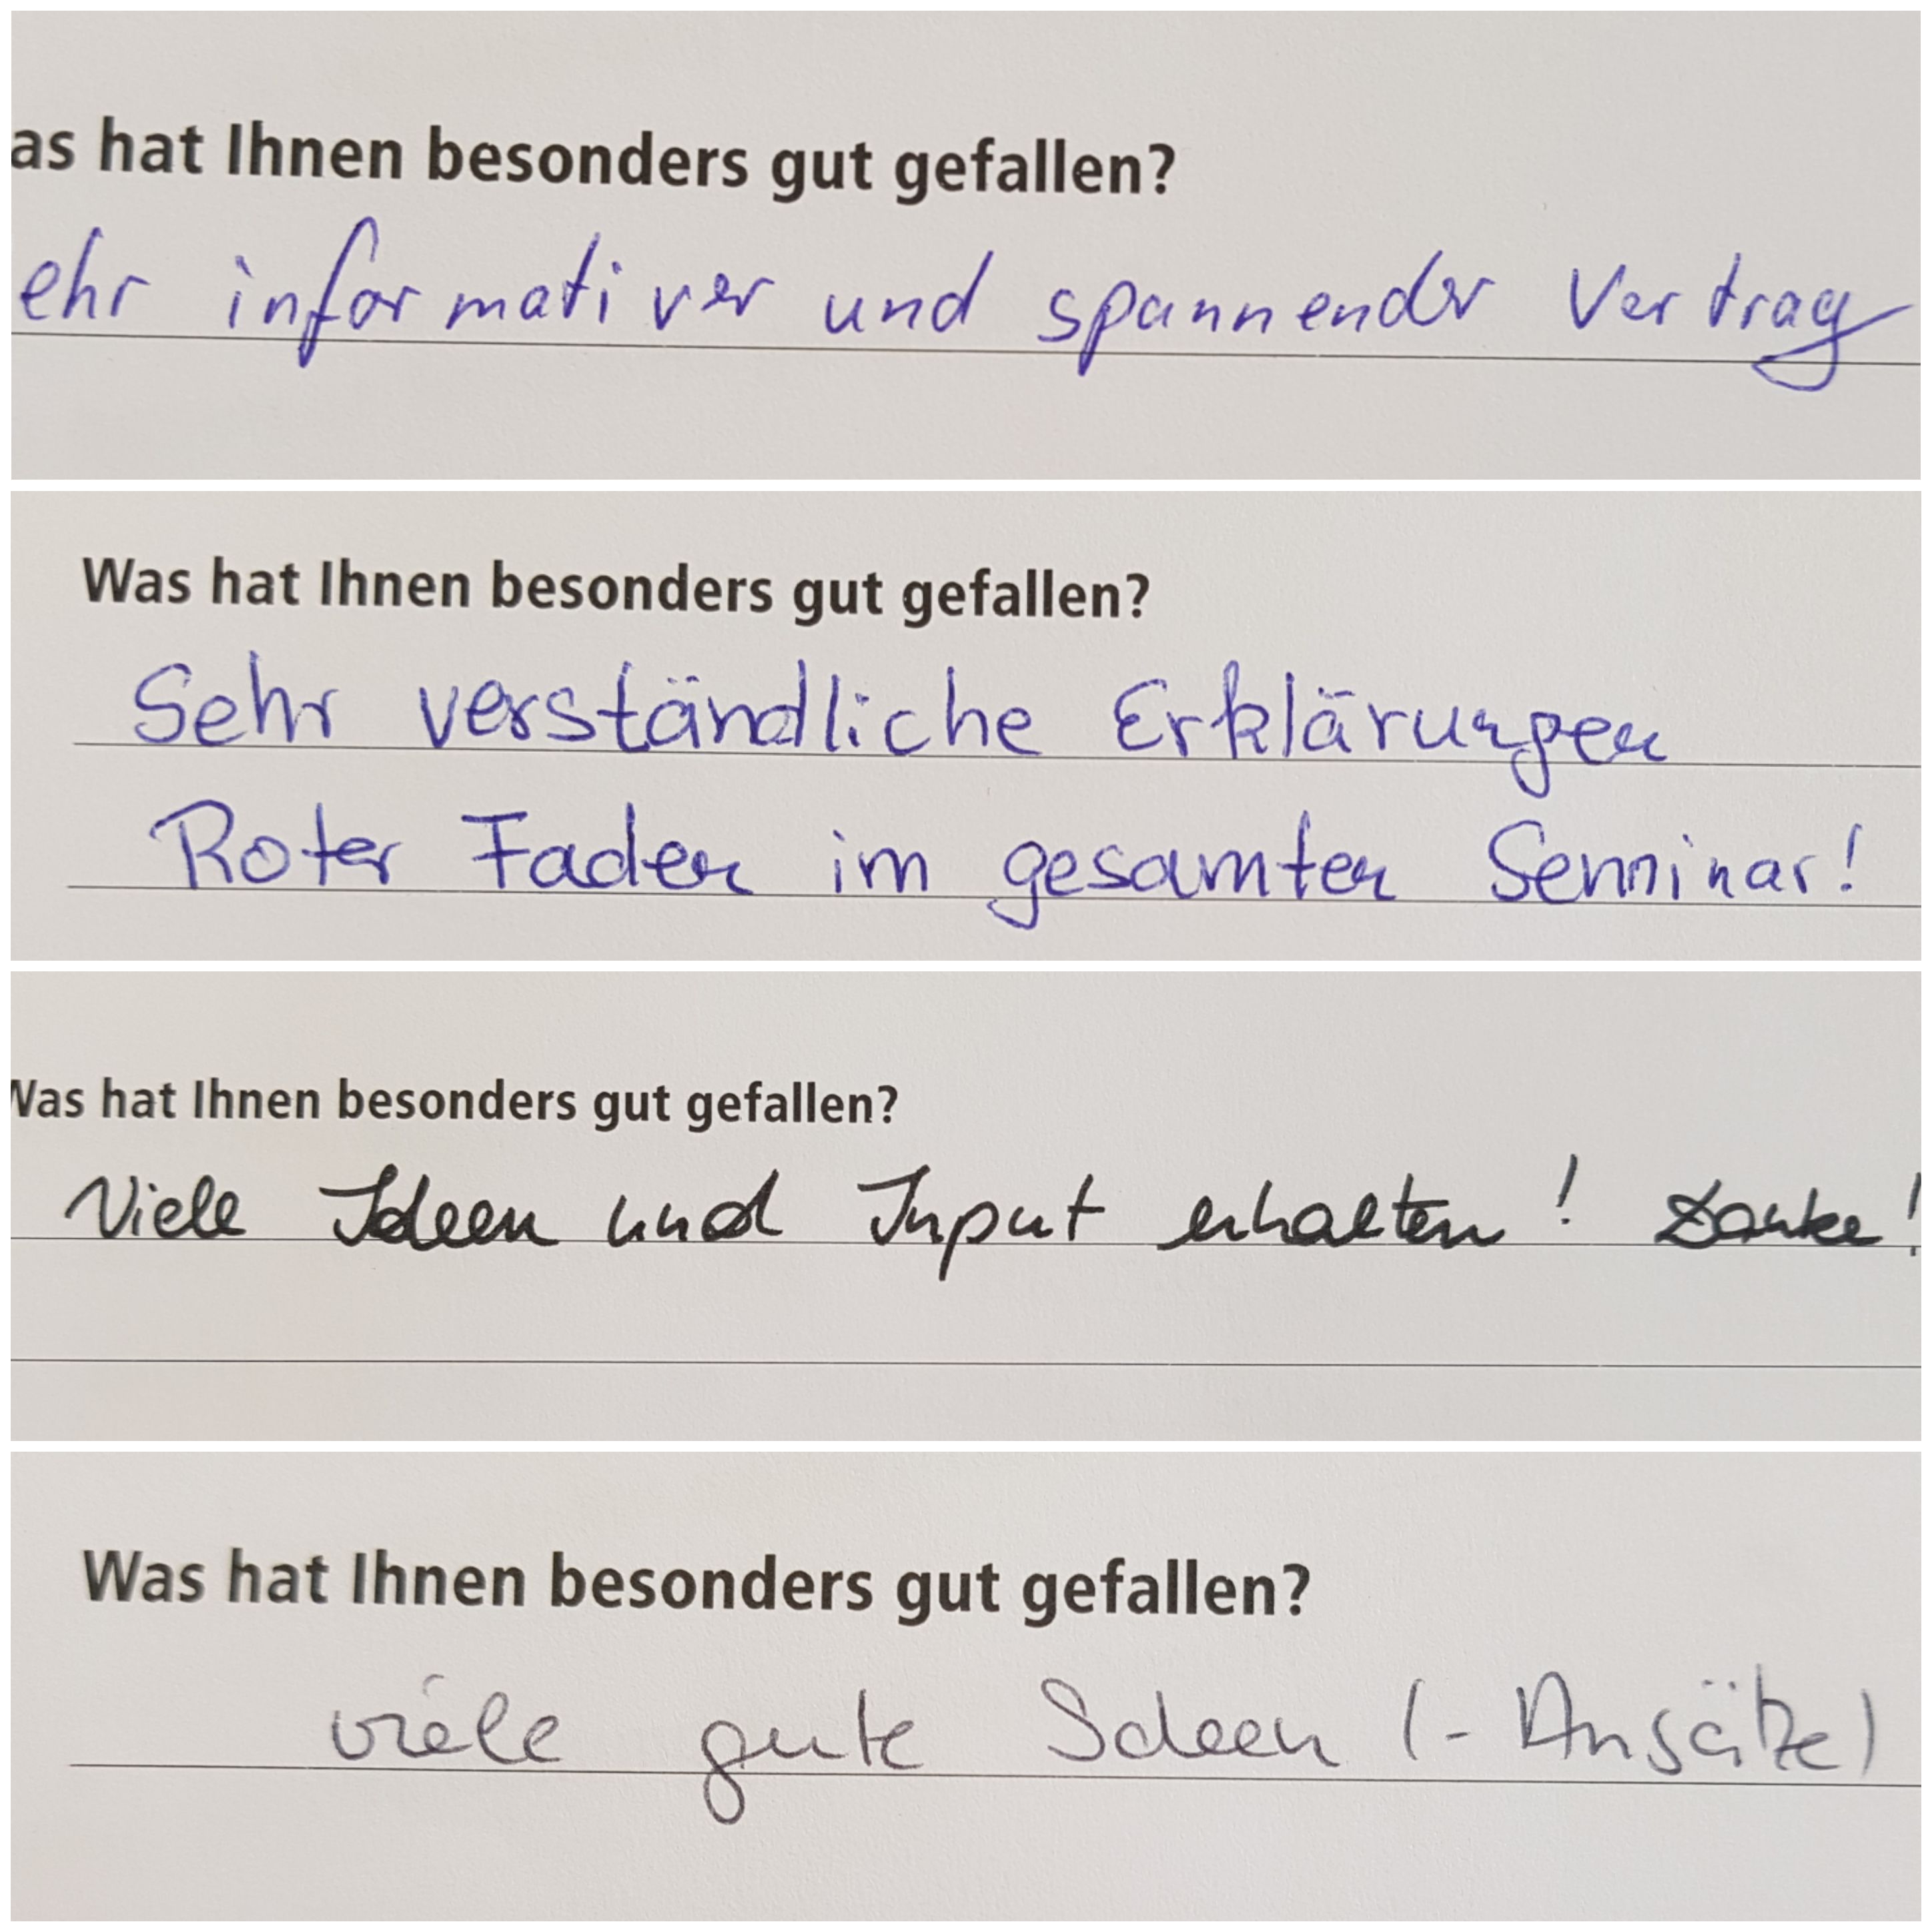 as hat Ihnen besonders gut gefallen?
ehr informativer und spannender Vertrag
Was hat Ihnen besonders gut gefallen?
Sehr verständliche Erklärungen
Roter Faden im gesamten Seminar!
Was hat Ihnen besonders gut gefallen?
Viele Ideen und Input erhalten! Danke!
Was hat Ihnen besonders gut gefallen?
viele gute Ideen (-Ansätze)